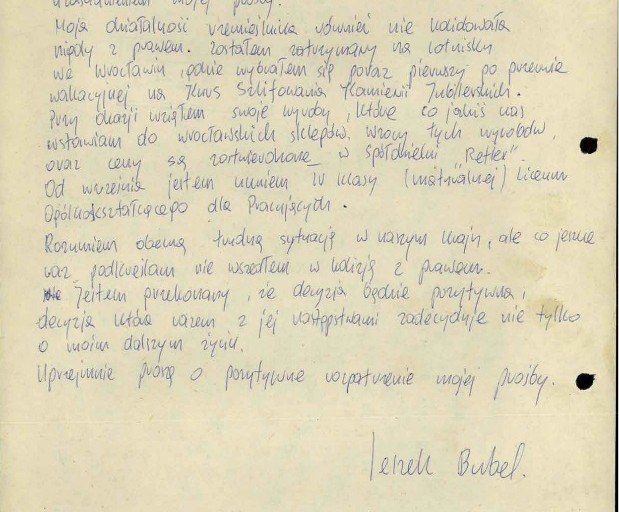 uzasadnieniem mojej prośby.
Moja działalność rzemieślnicza również nie kolidowała
nigdy z prawem. Zostałem zatrzymany na lotnisku
we Wrocławiu, gdzie wybrałem się poraz pierwszy po przerwie
wakacyjnej na Kurs Szlifowania Kamieni Jubilerskich.
Przy okazji wziąłem swoje wyroby, które co jakiś czas
wstawiam do wrocławskich sklepów. Wzory tych wyrobów,
oraz ceny są zatwierdzone w spółdzielni "Reflex".
Od września jestem uczniem IV klasy (maturalnej) Liceum
Ogólnokształcącego dla Pracujących.
Rozumiem obecną trudną sytuację w naszym kraju, ale co jeszcze
raz podkreślam nie wszedłem w kolizję z prawem.
Jestem przekonany, że decyzja będzie pozytywna,
decyzja która razem z jej następstwami zadecyduje nie tylko
o moim dalszym życiu.
Uprzejmie proszę o pozytywne rozpatrzenie mojej prośby.
Leszek Bubel.